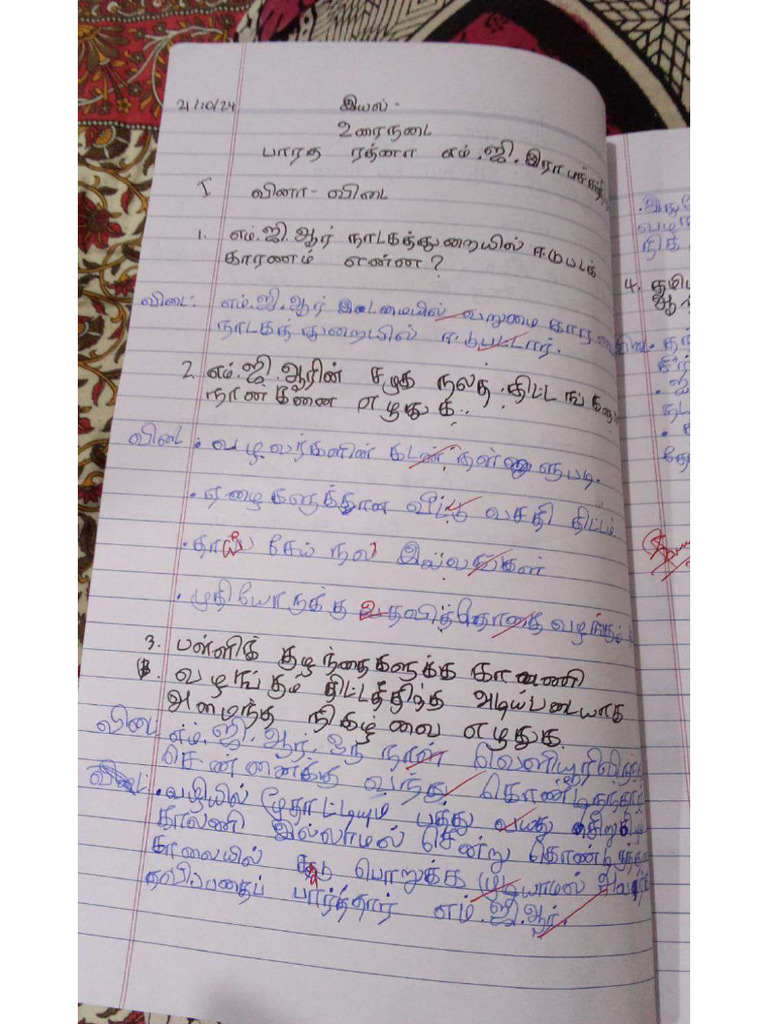 21/10/24
இயல் -
உரைநடை
பாரத ரத்னா எம்.ஜி.இராமச்சந்திரன்
I வினா - விடை
1. எம்.ஜி.ஆர் நாடகத்துறையில் ஈடுபடக்
காரணம் என்ன?
விடை: எம்.ஜி.ஆர் இடமையில் வறுமை காரணத்தில்
நாடகத்துறையில் ஈடுபட்டார்.
2. எம்.ஜி.ஆரின் சமூக நலத் திட்டங்களை
நான்கினை எழுதுக.
விடை: வழவர்களின் கடன் தள்ளுபடி.
. ஏழைகளுக்கான வீட்டு வசதி திட்டம்
. தாய் சேய் நல இல்லங்கள்
. முதியோருக்கு உதவித்தொகை வழங்கும்
3. பள்ளிக் குழந்தைகளுக்கு காலணி
வழங்கும் திட்டத்திற்கு அடிப்படையாக
அமைந்த நிகழ்வை எழுதுக.
விடை எம்.ஜி.ஆர். ஒரு நாள் வெளியூரிலிருந்து
சென்னைக்கு வந்து கொண்டிருந்தார்
விடை: . வழியில் மூதாட்டியும் பத்து வயது சிறுமி
காலணி இல்லாமல் சென்று கொண்டிருந்த
காலையில் சூடு பொறுக்க முடியாமல் அவர்
தவிப்பதைப் பார்த்தார் எம்.ஜி.ஆர்.
4. தமிழ